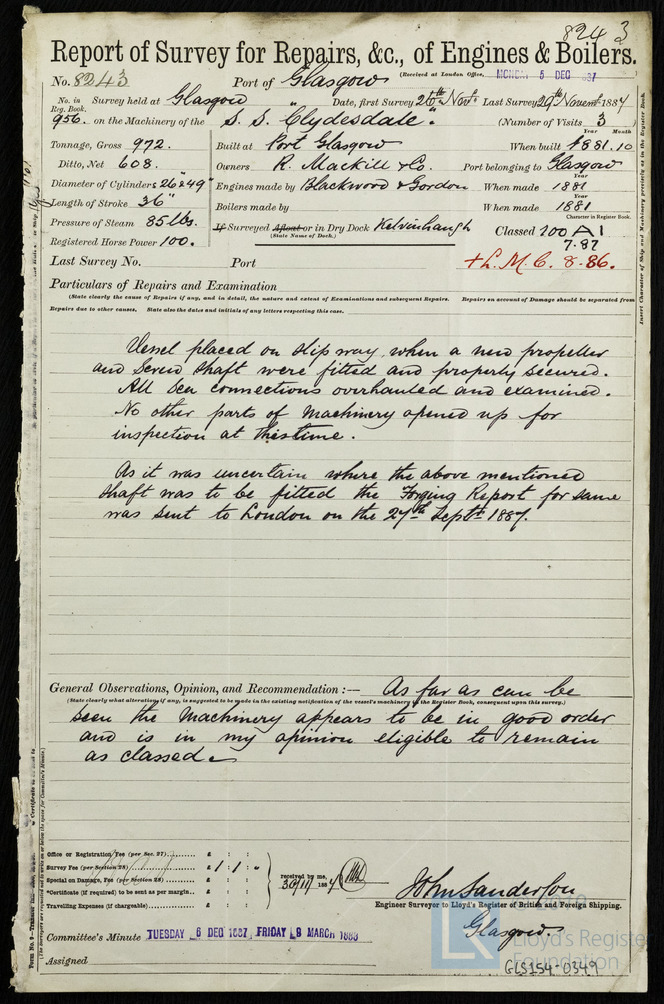 8243
Report of Survey for Repairs, &c., of Engines & Boilers.
(Received at London Office, MONDAY 5 DEC 1887
No. 8243 Port of Glasgow
No. in Reg. Book. Survey held at Glasgow Date, first Survey 26th Novr. Last Survey 29th Novemr. 1887
956. on the Machinery of the S. S. "Clydesdale." (Number of Visits 3)
Tonnage, Gross 972. Built at Port Glasgow When built Year 1881. Month 10
Ditto, Net 608. Owners R. Mackill & Co. Port belonging to Glasgow
Diameter of Cylinders 26" & 49" Engines made by Blackwood & Gordon When made Year 1881
Length of Stroke 36" Boilers made by When made Year 1881
Pressure of Steam 85 lbs. If Surveyed Afloat or in Dry Dock Kelvinhaugh
(State Name of Dock.)
Character in Register Book.
Classed 100 A1
7.87
Registered Horse Power 100.
Last Survey No. Port + L. M. C. 8.86.
Particulars of Repairs and Examination
(State clearly the cause of Repairs if any, and in detail, the nature and extent of Examinations and subsequent Repairs. Repairs on account of Damage should be separated from
Repairs due to other causes. State also the dates and initials of any letters respecting this case.
Vessel placed on slip way, when a new propeller
and Screw Shaft were fitted and properly secured.
All Sea connections overhauled and examined.
No other parts of Machinery opened up for
inspection at this time.
As it was uncertain where the above mentioned
shaft was to be fitted the Forging Report for same
was sent to London on the 27th Septr. 1887.
General Observations, Opinion, and Recommendation :— As far as can be
(State clearly what alteration, if any, is suggested to be made in the existing notification of the vessel's machinery in the Register Book, consequent upon this survey.)
seen the Machinery appears to be in good order
and is in my opinion eligible to remain
as classed.
Office or Registration Fee (per Sec. 27) £ : :
Survey Fee (per Section 28) £ 1 : 1 : "
Special on Damage, Fee (per Section 28) £ : :
*Certificate (if required) to be sent as per margin £ : :
Travelling Expenses (if chargeable) £ : :
received by me,
30/11/1887
John Sanderson
Engineer Surveyor to Lloyd's Register of British and Foreign Shipping.
Glasgow
Committee's Minute TUESDAY 6 DEC 1887, FRIDAY 8 MARCH 1888
Assigned
Lloyd's Register
Foundation
GLS154-0349
Insert Character of Ship and Machinery precisely as in the Register Book.